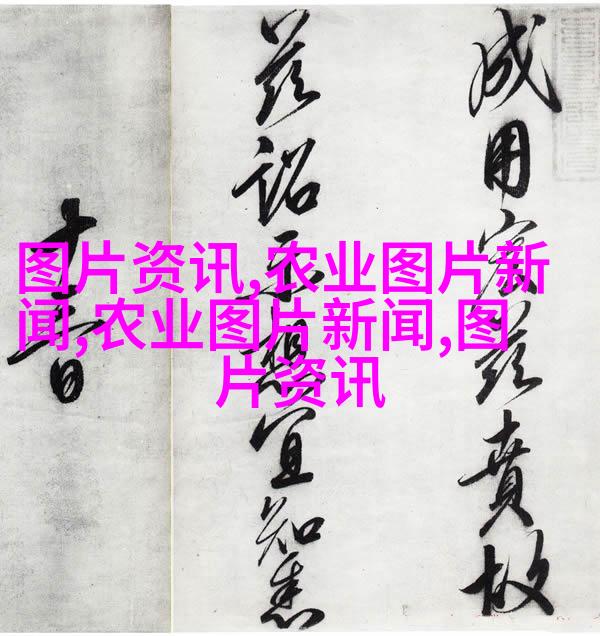 成用宏茲賁故
茲詔示想宜知悉
图片资讯,农业图片新
闻,农业图片新闻,图
片资讯